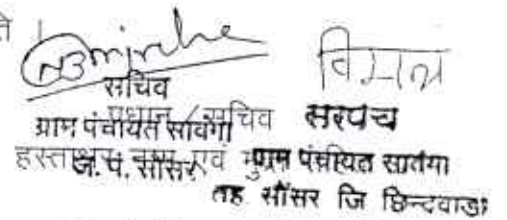 ते
सचिव
प्रधान / सचिव सरपंच
ग्राम पंचायत सावंगा
हस्ताक्षर नाम एवं मुद्रा ग्राम पंचायत सावंगा
ज. पं. सौंसर
तह सौंसर जि छिन्दवाडा